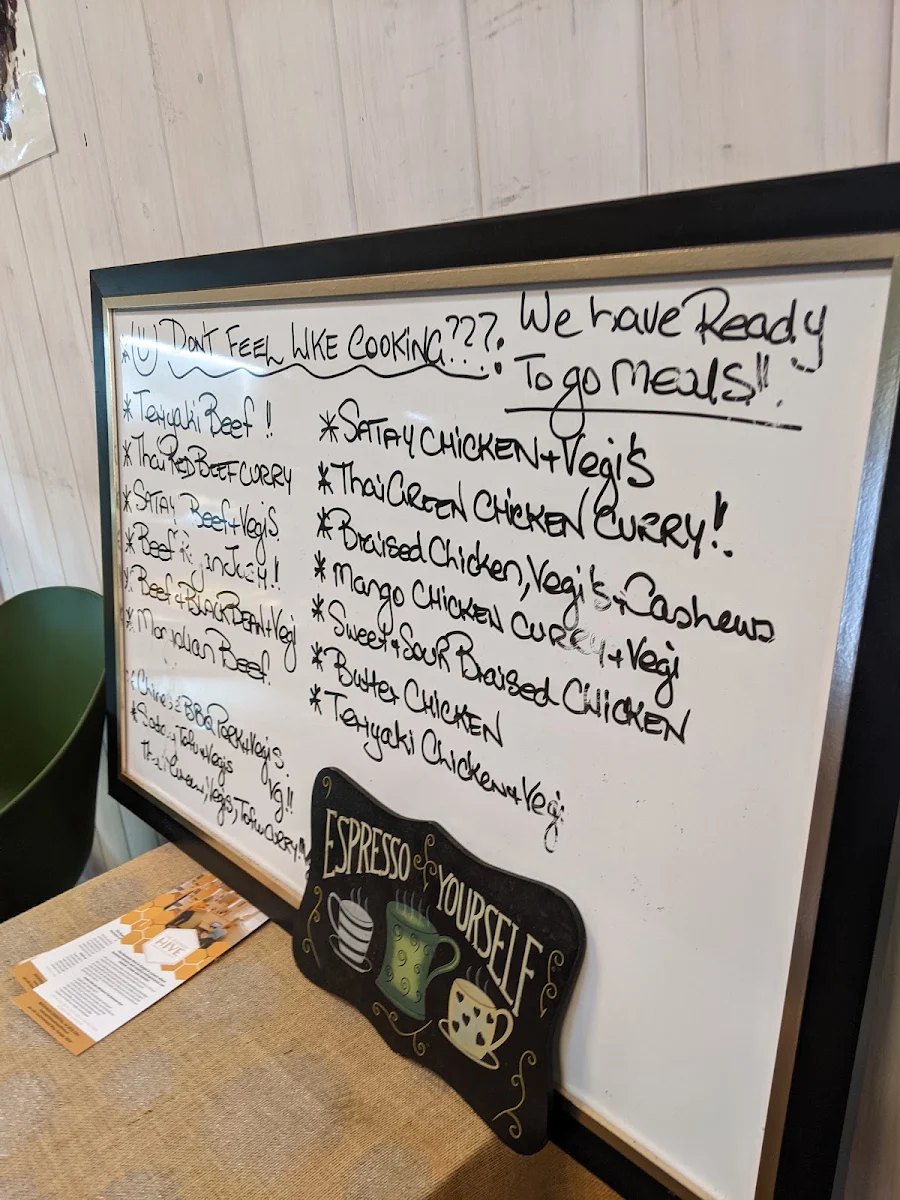 *(U) DON'T FEEL LIKE COOKING???.
We have Ready
To go Meals!!
* Teriyaki Beef !
* Thai RED BEEF CURRY
* SATAY Beef + Vegi's
* Beef
* Beef + BLACK BEAN + Vegi
* Mongolian Beef.
* Chinese BBQ PORK + Vegi's.
* Satay Tofu + Vegi's Vg!!
Thai Green, Vegi's, Tofu CURRY!!
* SATAY CHICKEN + Vegi's
* Thai GREEN CHICKEN CURRY!!
* Braised Chicken, Vegi's + Cashews
* Mango CHICKEN CURRY + Vegi
* Sweet + SOUR Braised CHICKEN
* Butter CHICKEN
* Teriyaki Chicken + Vegi
ESPRESSO
YOURSELF
HIVE